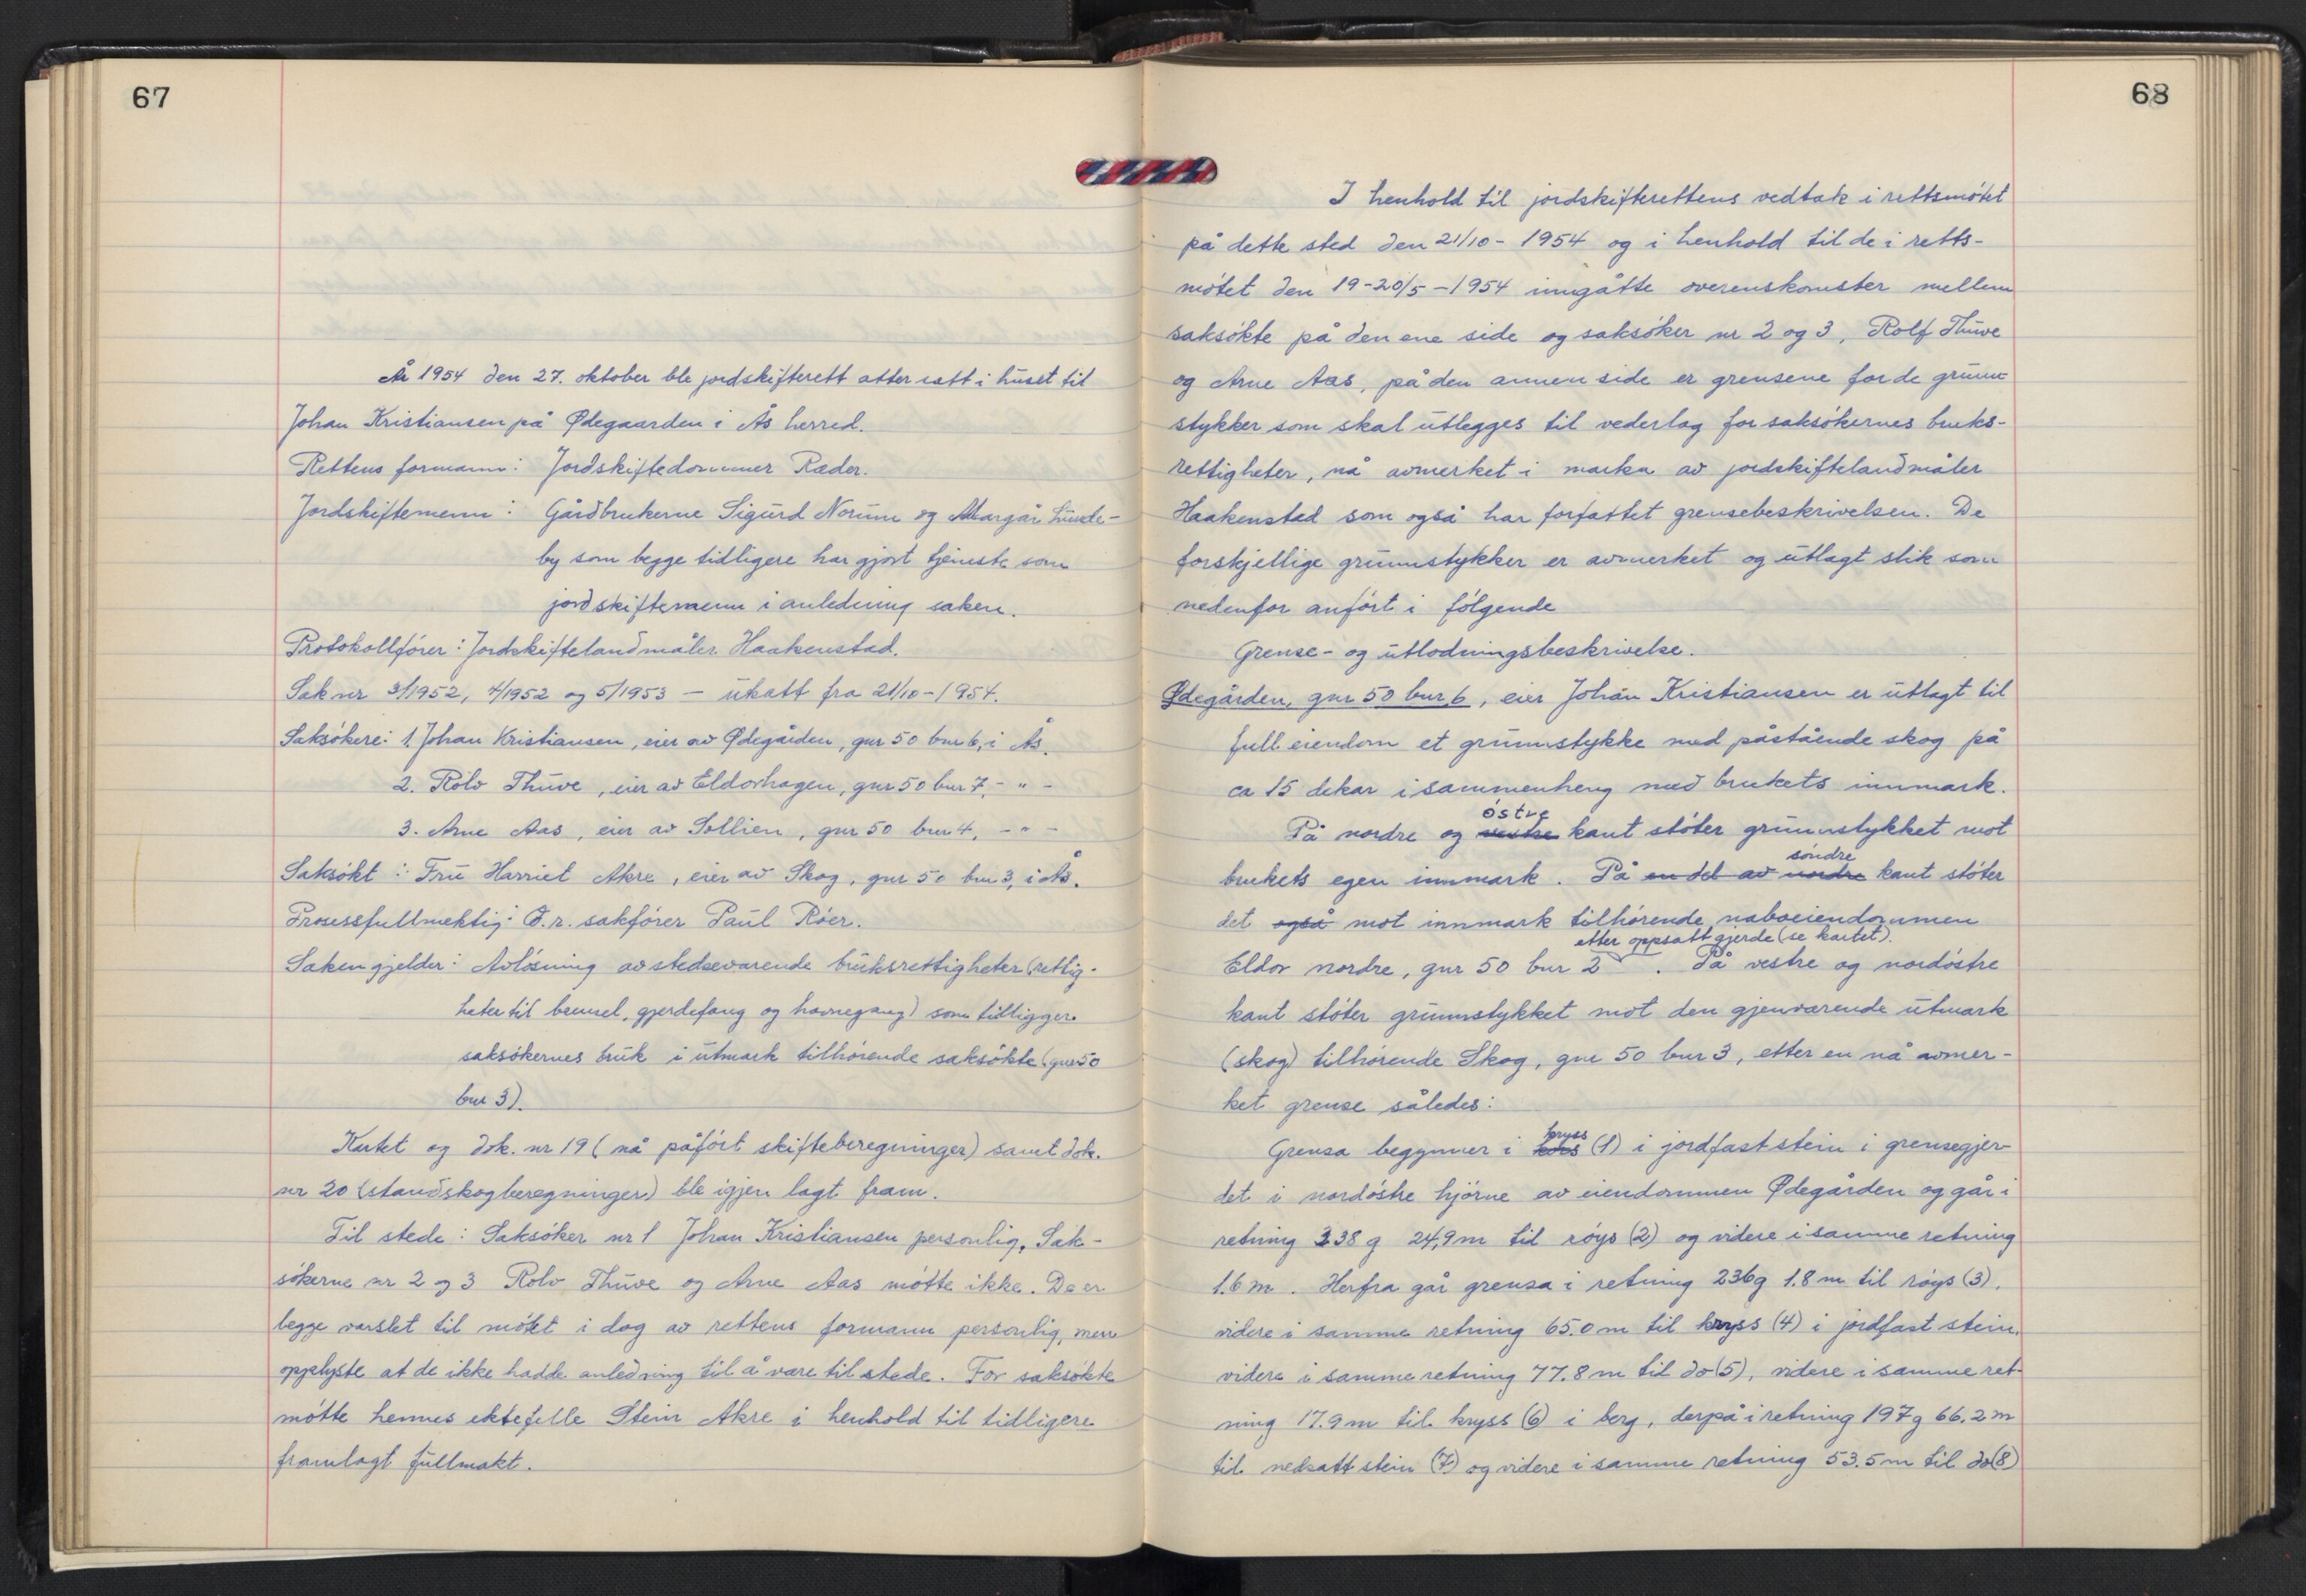 67
År 1954 den 27. oktober ble jordskifterett atter satt i huset til
Johan Kristiansen på Ødegaarden i Ås herred.
Rettens formann: Jordskiftedommer Ræder.
Jordskiftemenn: Gårdbrukerne Sigurd Norum og Margar
by som begge tidligere har gjort tjeneste som
jordskiftemenn i anledning saken.
Protokollfører: Jordskiftelandmåler Haakenstad.
Sak nr 3/1952, 4/1952 og 5/1953 – utsatt fra 21/10-1954.
Saksøkere: 1. Johan Kristiansen, eier av Ødegården, gnr 50 bnr 6, i Ås.
2. Rolv Thuve, eier av Eldorhagen, gnr 50 bnr 7, - " -
3. Arne Aas, eier av Sollien, gnr 50 bnr 4, - " -
Saksøkt: Fru Harriet Akre, eier av Skog, gnr 50 bnr 3, i Ås.
Prosessfullmektig: O.r. sakfører Paul Röer.
Saken gjelder: Avløsning av stedsevarende bruksrettigheter (rettig-
heter til brensel, gjerdefang og havnegang) som tilligger
saksøkernes bruk i utmark tilhørende saksøkte (gnr 50
bnr 3).
Kartet og dok. nr 19 (nå påført skifteberegninger) samt dok.
nr 20 (standskogberegninger) ble igjen lagt fram.
Til stede: Saksøker nr 1 Johan Kristiansen personlig. Sak-
søkerne nr 2 og 3 Rolv Thuve og Arne Aas møtte ikke. De er
begge varslet til møtet i dag av rettens formann personlig, men
opplyste at de ikke hadde anledning til å være til stede. For saksøkte
møtte hennes ektefelle Stein Akre i henhold til tidligere
framlagt fullmakt.
68
I henhold til jordskifterettens vedtak i rettsmøtet
på dette sted den 21/10-1954 og i henhold til de i retts-
møtet den 19-20/5-1954 inngåtte overenskomster mellem
saksøkte på den ene side og saksøker nr 2 og 3, Rolf Thuve
og Arne Aas, på den annen side er grensene for de grunn-
stykker som skal utlegges til vederlag for saksøkernes bruks-
rettigheter, nå avmerket i marka av jordskiftelandmåler
Haakenstad som også har forfattet grensebeskrivelsen. De
forskjellige grunnstykker er avmerket og utlagt slik som
nedenfor anført i følgende
Grense- og utlodningsbeskrivelse.
Ødegården, gnr 50 bnr 6, eier Johan Kristiansen er utlagt til
full eiendom et grunnstykke med påstående skog på
ca 15 dekar i sammenheng med brukets innmark.
østre
På nordre og vestre kant støter grunnstykket mot
søndre
brukets egen innmark. På en del av nordre kant støter
det også mot innmark tilhørende naboeiendommen
etter oppsatt gjerde (se kartet).
Eldor nordre, gnr 50 bnr 2. På vestre og nordøstre
kant støter grunnstykket mot den gjenværende utmark
(skog) tilhørende Skog, gnr 50 bnr 3, etter en nå avmer-
ket grense således:
kryss
Grensa begynner i kors (1) i jordfast stein i grensegjer-
det i nordøstre hjørne av eiendommen Ødegården og går i
retning 338 g 24,9 m til røys (2) og videre i samme retning
1.6 m. Herfra går grensa i retning 236g 1.8 m til røys (3),
videre i samme retning 65.0 m til kryss (4) i jordfast stein,
videre i samme retning 77.8 m til do (5), videre i samme ret-
ning 17.9 m til kryss (6) i berg, derpå i retning 197g 66.2 m
til nedsatt stein (7) og videre i samme retning 53.5 m til do (8)